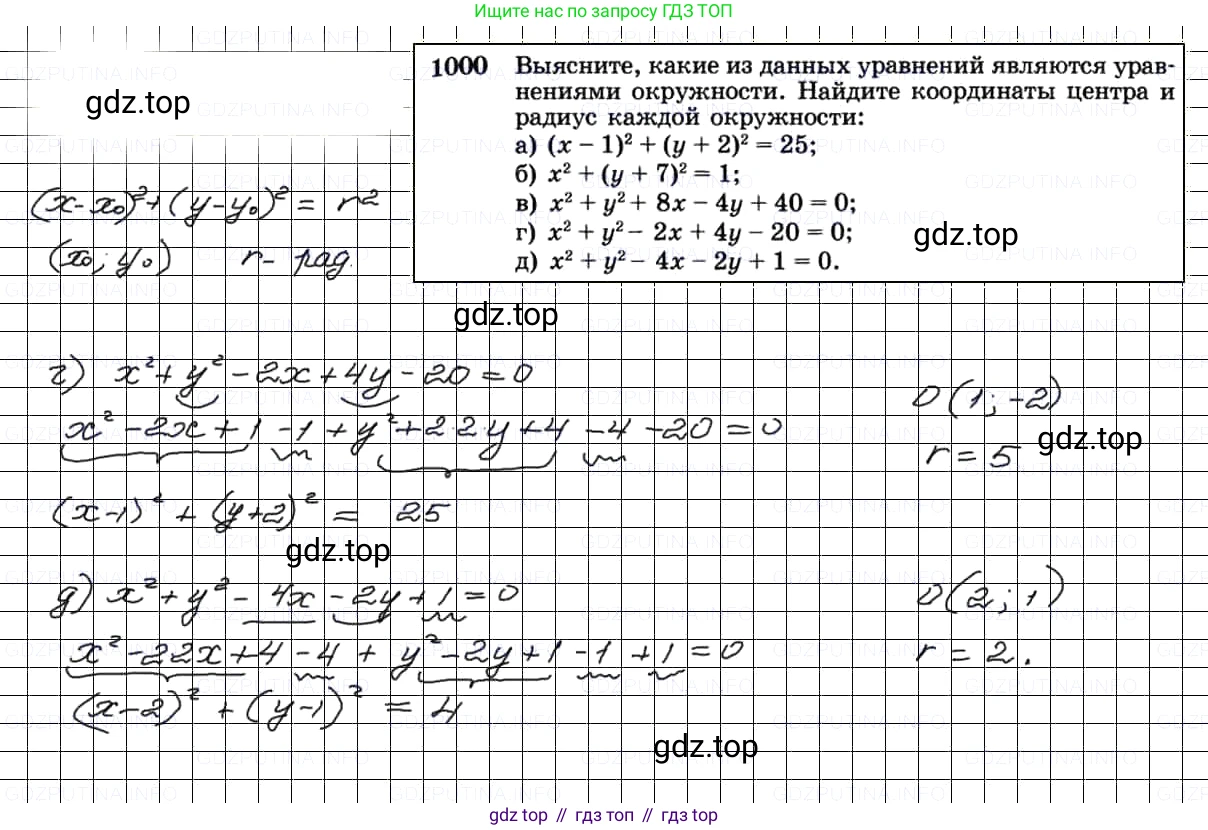 Ищите нас по запросу ГДЗ ТОП
1000 Выясните, какие из данных уравнений являются урав-
нениями окружности. Найдите координаты центра и
радиус каждой окружности:
а) (x − 1)² + (y + 2)² = 25;
б) x² + (y + 7)² = 1;
в) x² + y² + 8x − 4y + 40 = 0;
г) x² + y² − 2x + 4y − 20 = 0;
д) x² + y² − 4x − 2y + 1 = 0.
gdz.top
(x-x₀)²+(y-y₀)² = r²
(x₀; y₀) r - рад.
gdz.top
gdz.top
г) x²+y²-2x+4y-20=0
x²-2x+1-1+y²+2·2·y+4-4-20=0
(x-1)²+(y+2)² = 25
O(1;-2)
r=5
gdz.top
gdz.top
д) x²+y²-4x-2y+1=0
x²-2·2x+4-4+y²-2y+1-1+1=0
(x-2)²+(y-1)² = 4
O(2;1)
r=2.
gdz.top
gdz top // гдз топ // gdz top
GDZPUTINA.INFO